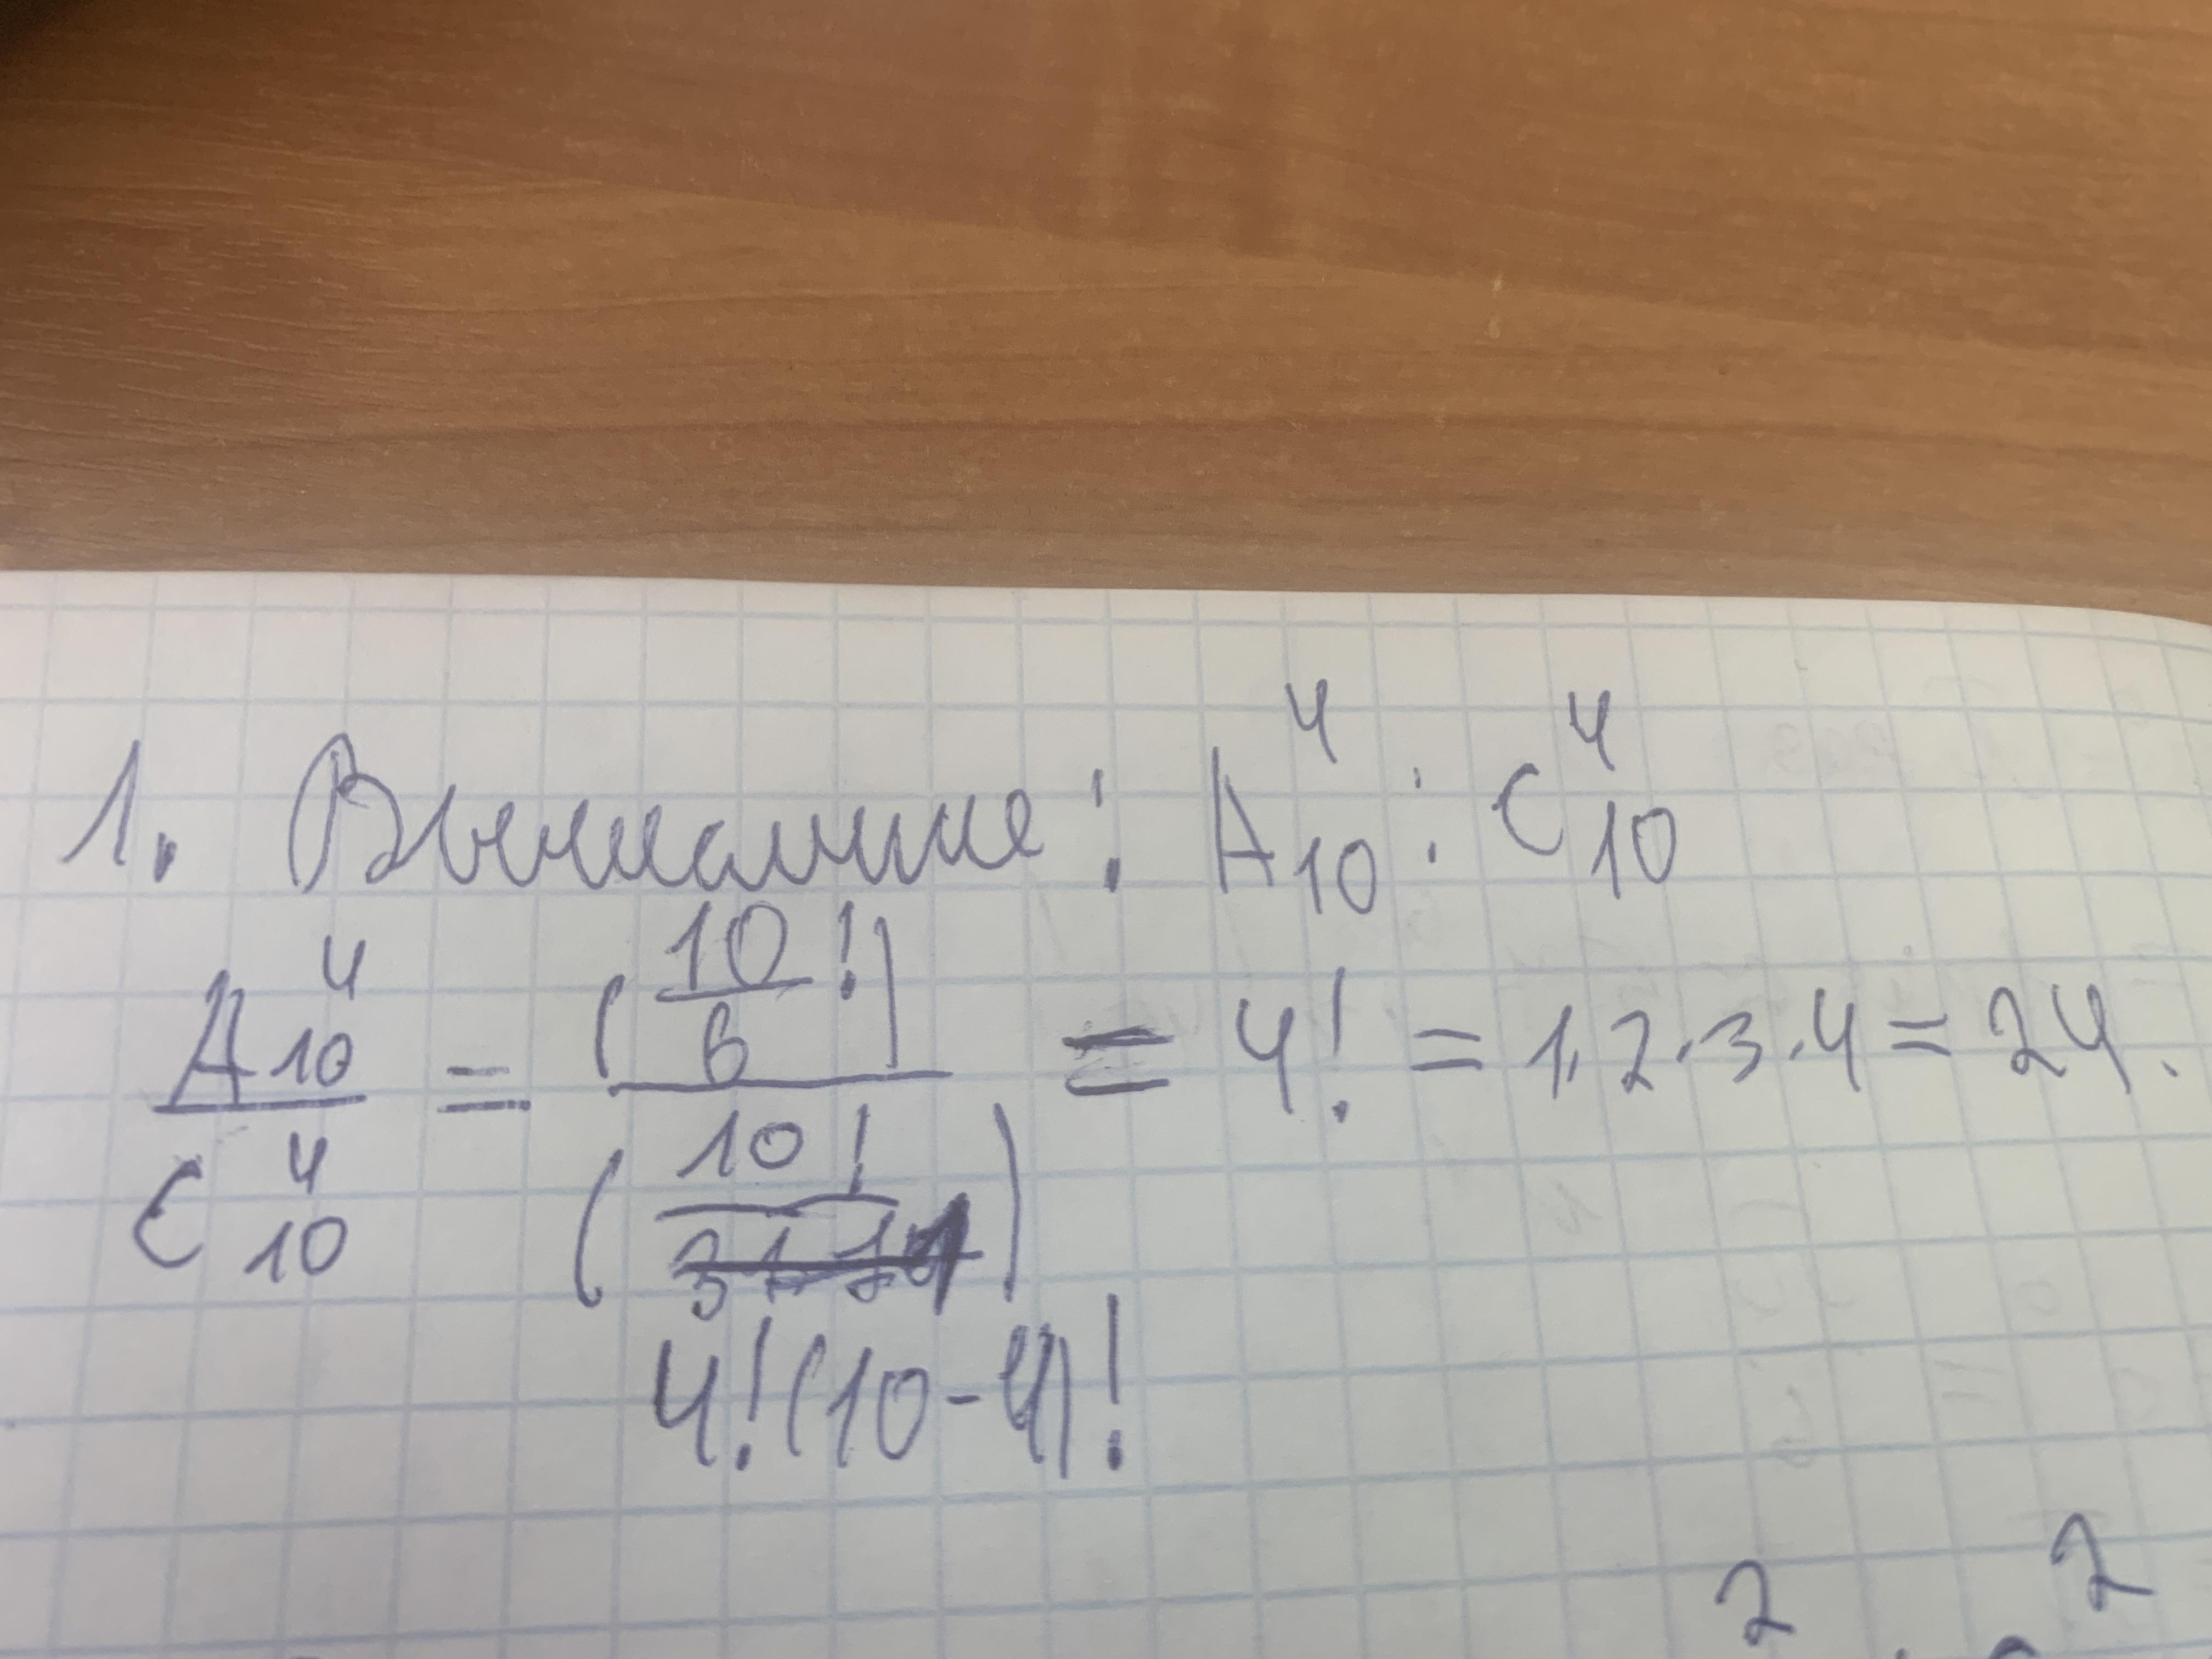 1. Вычислите: A₁₀⁴ : C₁₀⁴
A₁₀⁴ / C₁₀⁴ = (10 / 6 !) / (10! / 4!(10-4)!) = 4! = 1·2·3·4 = 24.
2 2